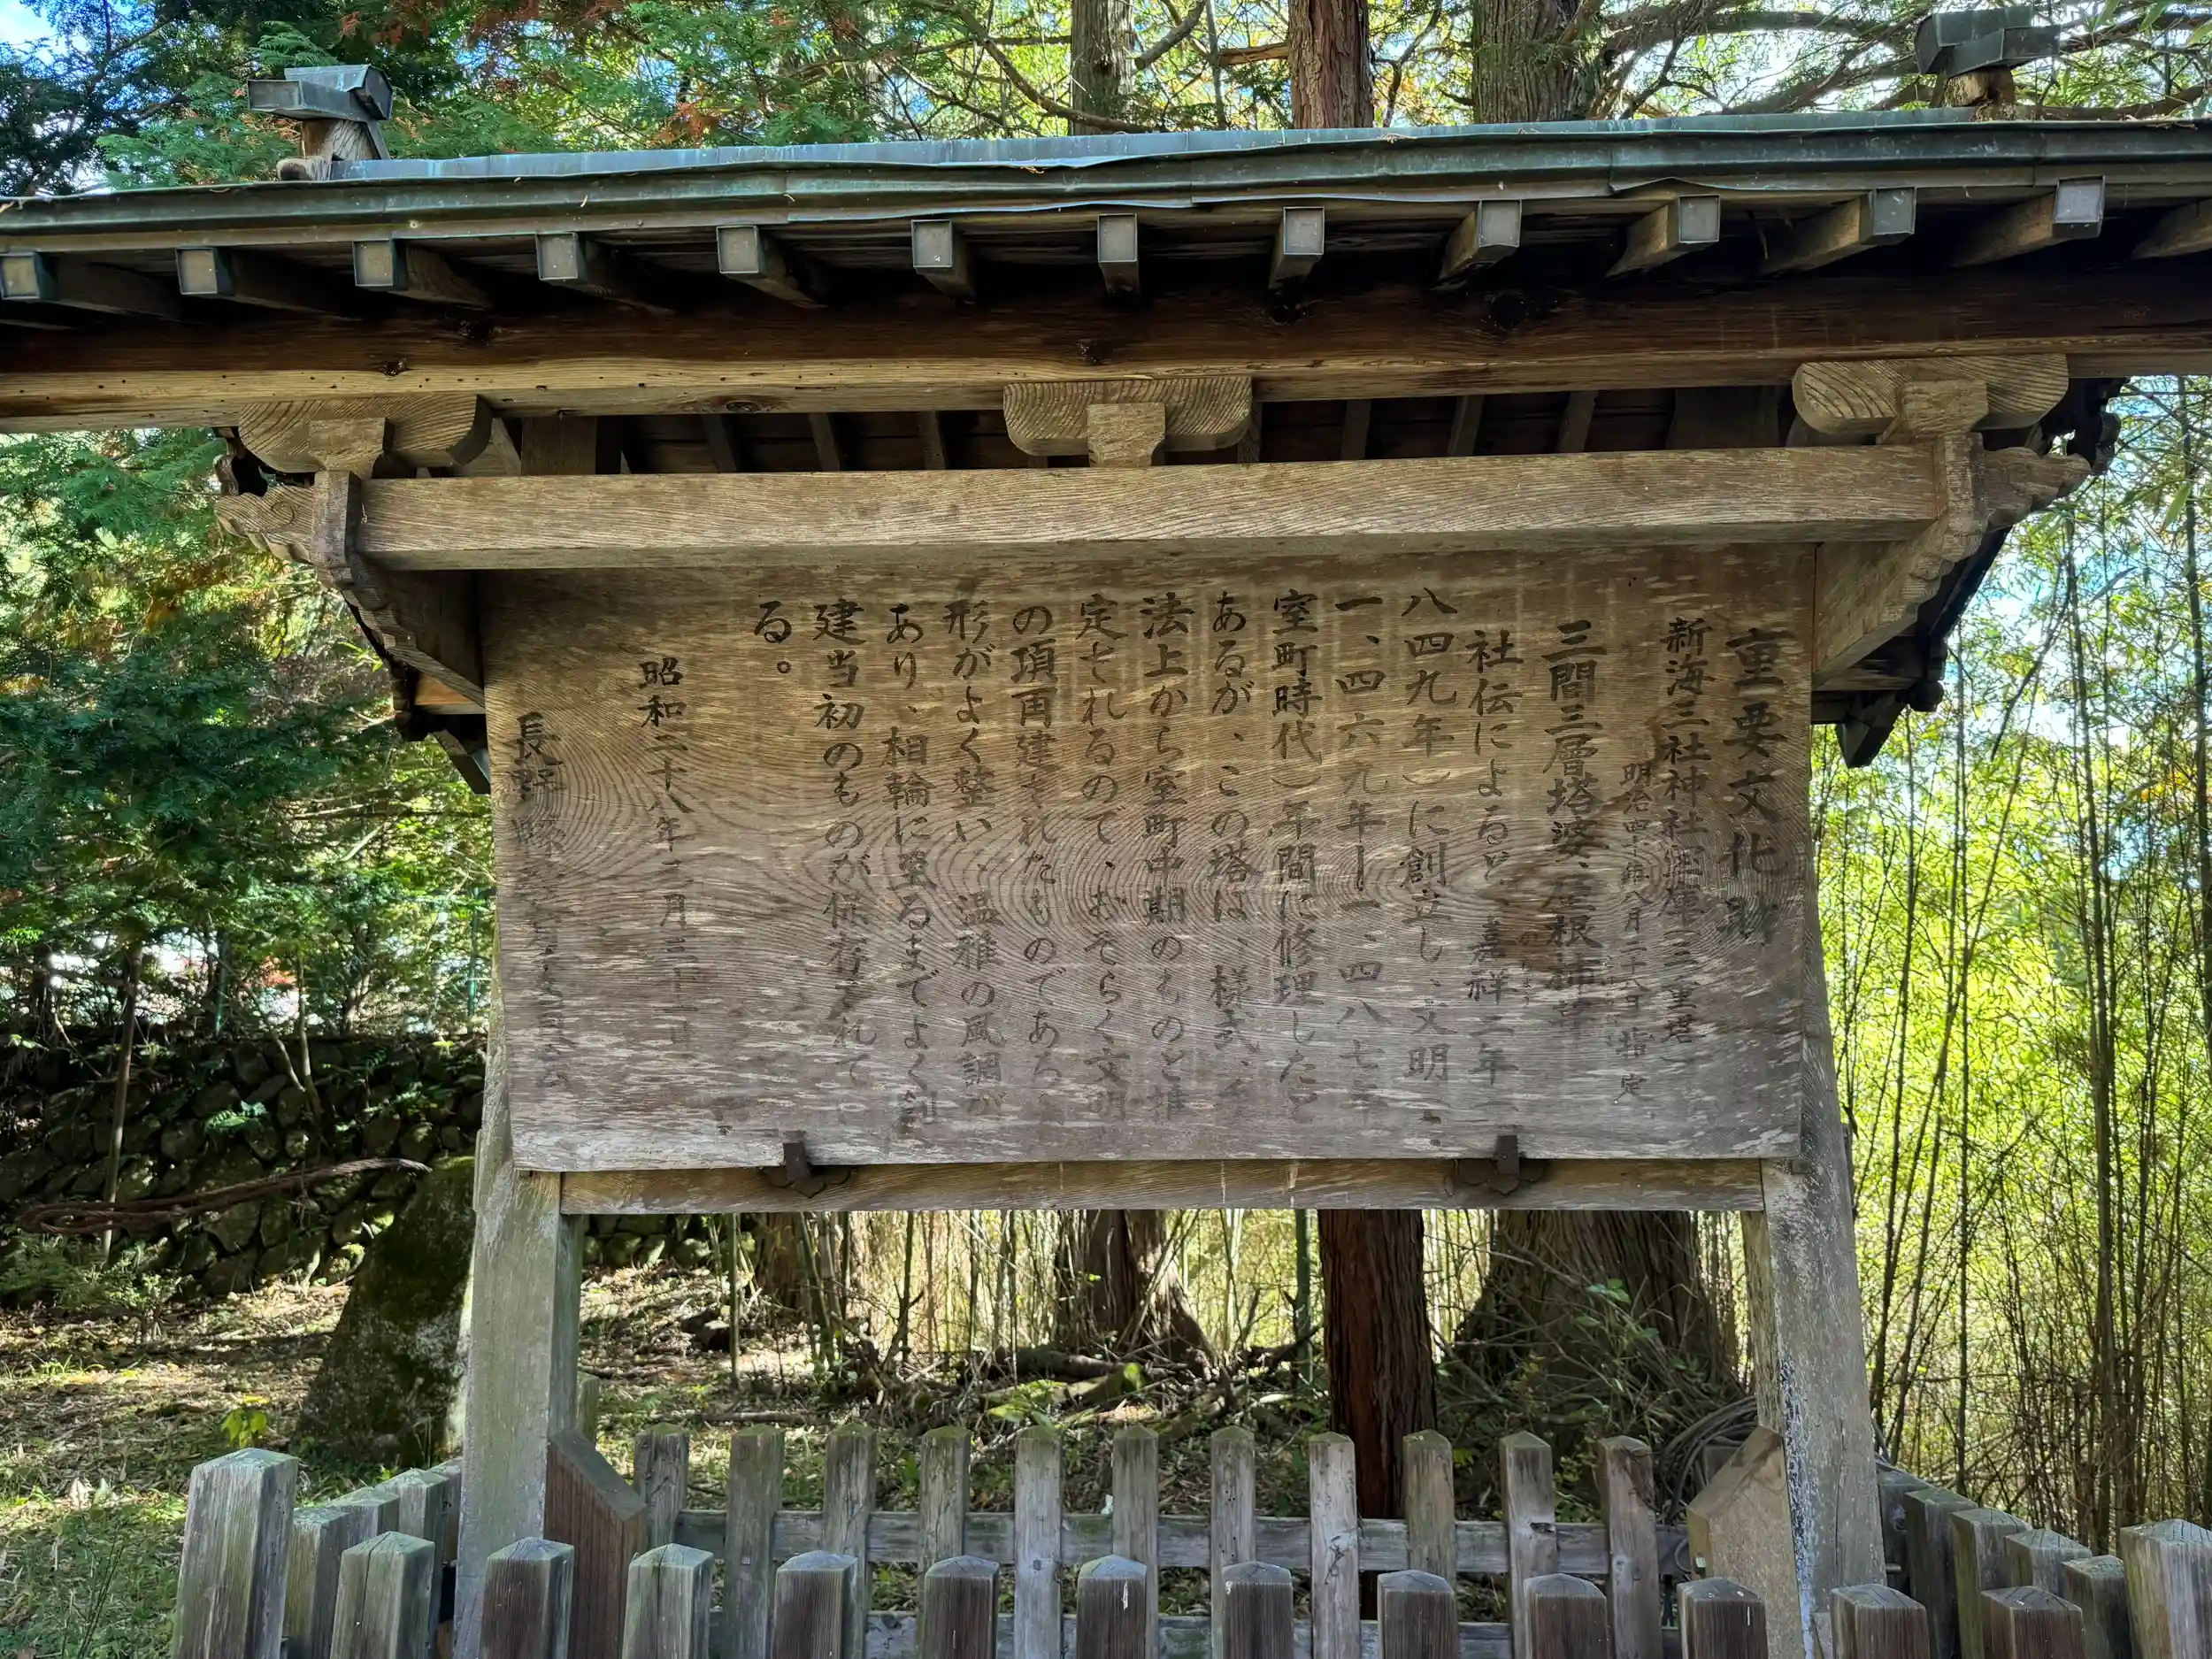 重要文化財
新海三社神社宝庫(三重塔)
明治四十年八月二十八日 指定
三間三層塔婆、屋根柿葺
社伝によると、嘉祥二年(
八四九年)に創立し、文明(
一、四六九年ー一、四八七年
室町時代)年間に修理したと
あるが、この塔は、様式、手
法上から室町中期のものと推
定されるので、おそらく文明
の頃再建されたものであろう
形がよく整い、温雅の風調が
あり、相輪に至るまでよく創
建当初のものが保存されてい
る。
昭和二十八年二月二十一日
長野縣教育委員会